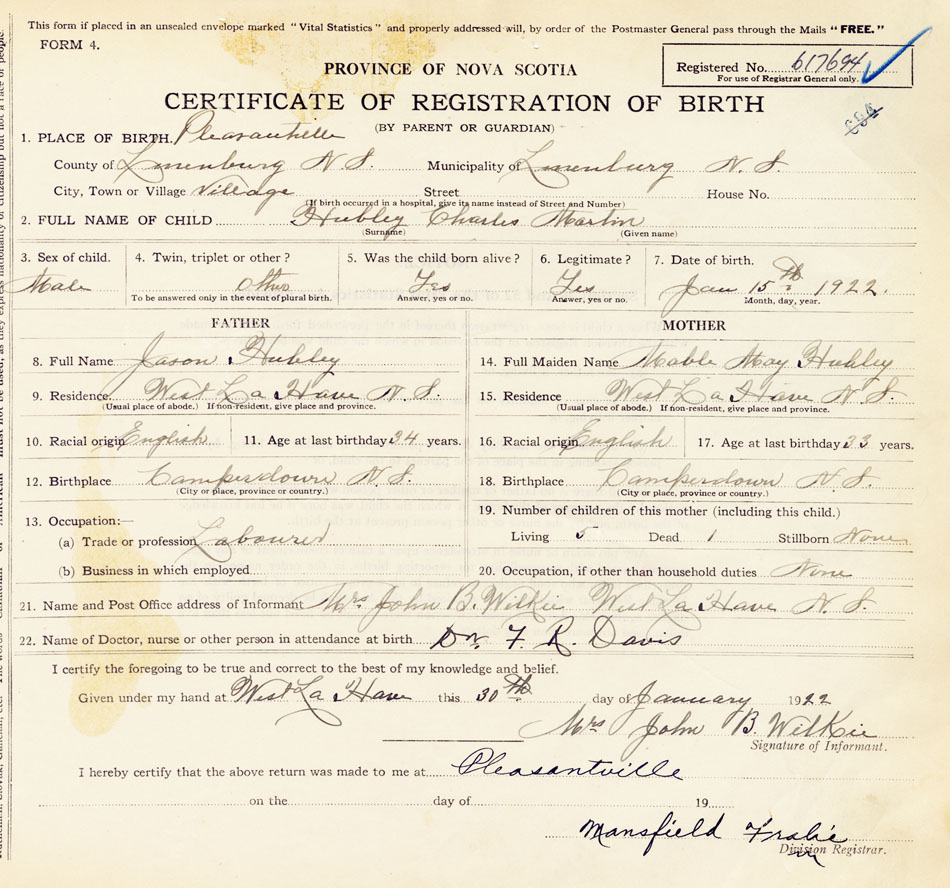 This form if placed in an unsealed envelope marked "Vital Statistics" and properly addressed will, by order of the Postmaster General pass through the Mails "FREE."
FORM 4.
Registered No. 617694
For use of Registrar General only.
PROVINCE OF NOVA SCOTIA
CERTIFICATE OF REGISTRATION OF BIRTH
(BY PARENT OR GUARDIAN)
1. PLACE OF BIRTH. Pleasantville
County of Lunenburg N. S. Municipality of Lunenburg N. S.
City, Town or Village Village Street House No.
(If birth occurred in a hospital, give its name instead of Street and Number)
2. FULL NAME OF CHILD Hubley Charles Martin
(Surname) (Given name)
3. Sex of child. 4. Twin, triplet or other? 5. Was the child born alive? 6. Legitimate? 7. Date of birth.
Male Other Yes Yes Jan 15th 1922.
To be answered only in the event of plural birth. Answer, yes or no. Answer, yes or no. Month, day, year.
FATHER
8. Full Name Jason Hubley
9. Residence. West La Have N. S.
(Usual place of abode.) If non-resident, give place and province.
10. Racial origin English 11. Age at last birthday 34 years.
12. Birthplace Camperdown N. S.
(City or place, province or country.)
13. Occupation:—
(a) Trade or profession Labourer
(b) Business in which employed
MOTHER
14. Full Maiden Name Mable May Hubley
15. Residence West La Have N. S.
(Usual place of abode.) If non-resident, give place and province.
16. Racial origin English 17. Age at last birthday 33 years.
18. Birthplace Camperdown N. S.
(City or place, province or country.)
19. Number of children of this mother (including this child.)
Living 5 Dead 1 Stillborn None
20. Occupation, if other than household duties None
21. Name and Post Office address of Informant Mrs John B. Wilkie West La Have N. S.
22. Name of Doctor, nurse or other person in attendance at birth Dr. F. R. Davis
I certify the foregoing to be true and correct to the best of my knowledge and belief.
Given under my hand at West La Have this 30th day of January 1922
Mrs John B. Wilkie
Signature of Informant.
I hereby certify that the above return was made to me at Pleasantville
on the day of 19
Mansfield
Division Registrar.